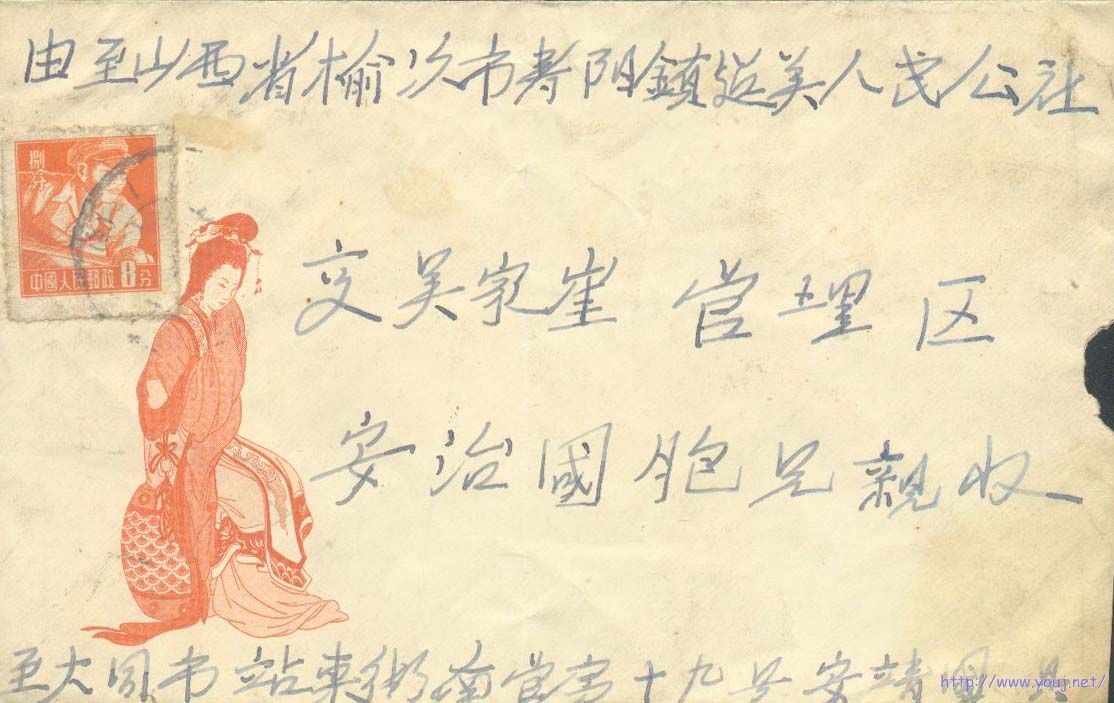 由至山西省榆次市寿阳鎮从美人民公社
捌分
中國人民郵政 8分
交吴家崖 管理区
安治國胞兄親收
至大同市站東街南官房十九号安靖國具
http://www.youj.net/